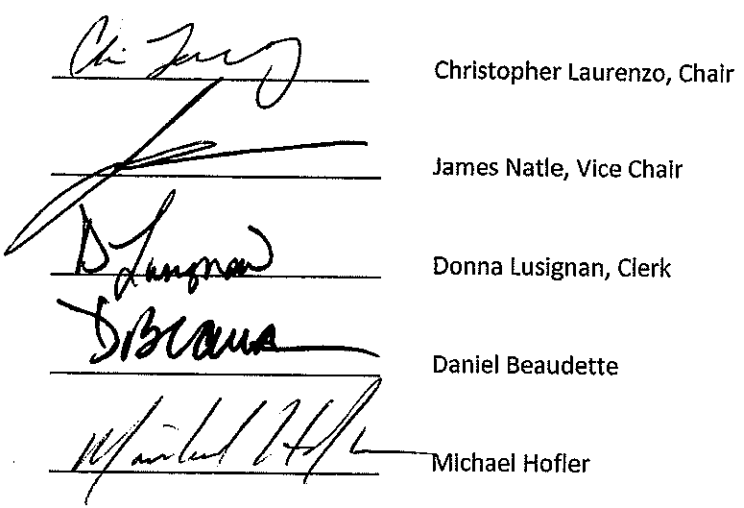 Christopher Laurenzo, Chair
James Natle, Vice Chair
D Lusignan Donna Lusignan, Clerk
Daniel Beaudette
Michael Hofler Michael Hofler